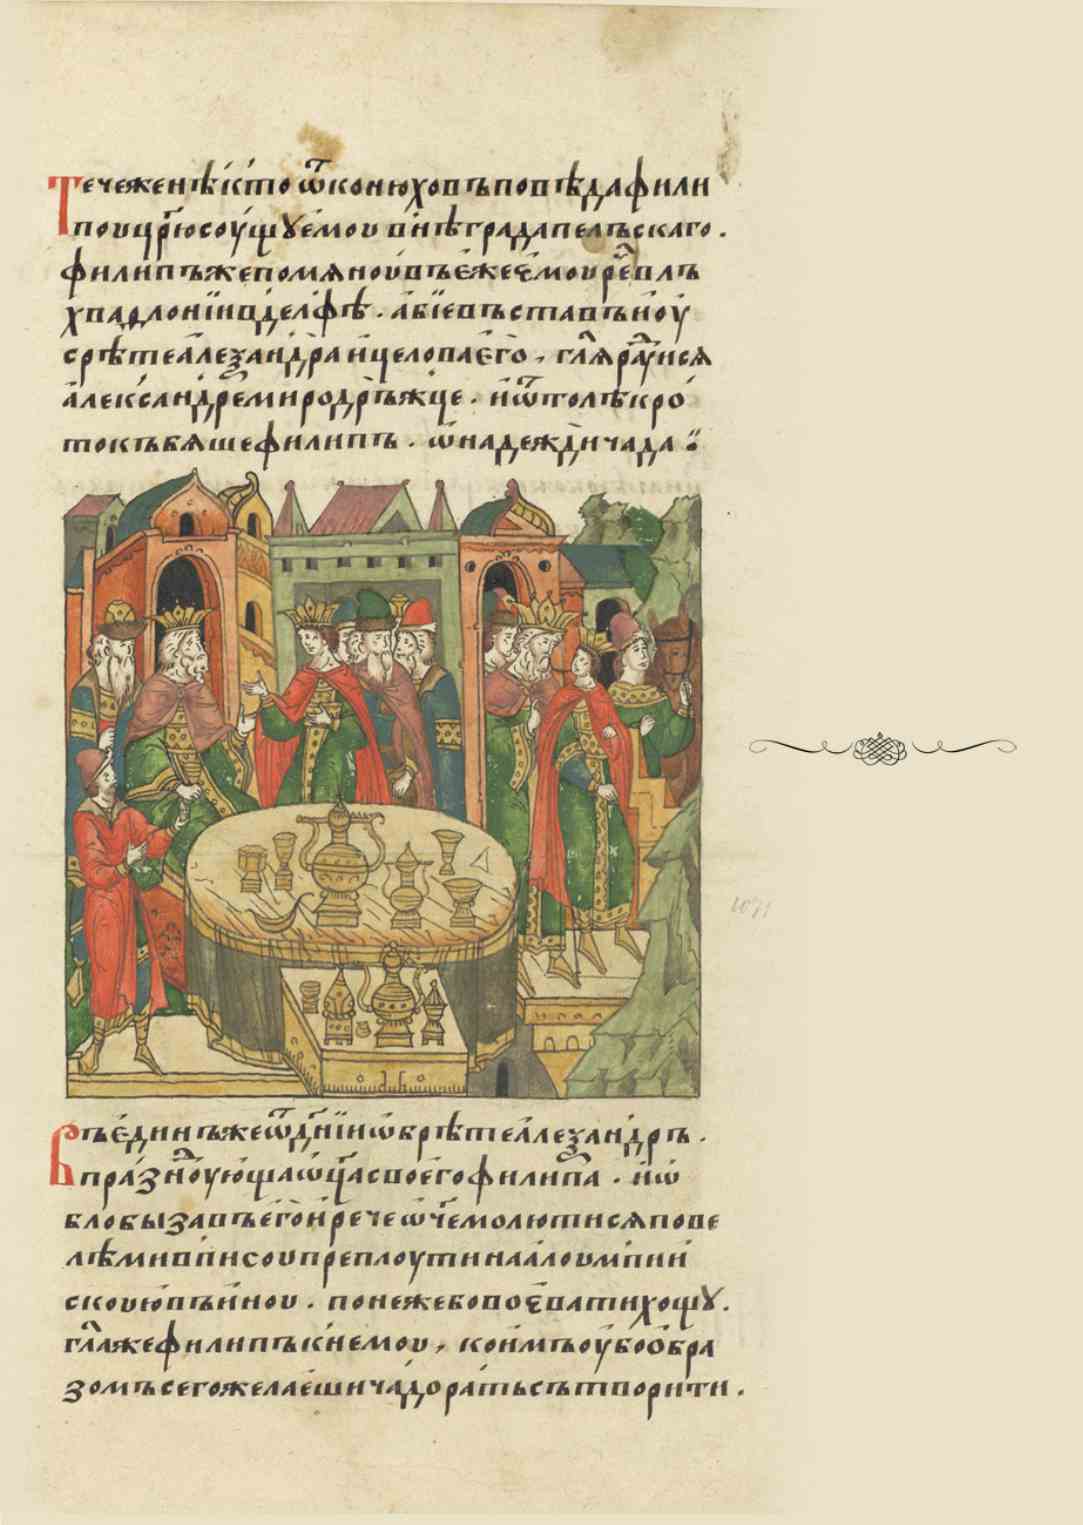 Течеженѣ́кто ѿконюховъповѣдафили
поуцр҃юсоу́щꙋемоу внѣградапелъскаго.
филипъжепомяноувъе́жеемоуре́влъ
хвадлоні́ивделфѣ. а́біевъставъноу́
срѣтеа́леѯандраицеловаего̀, гл҃яра́уися
а́лекса́ндремиродръ́жце. иѿтолѣкро́
токъбяшефилипъ. ѿнадеждичада
Въединъжеѿдн҃іиѡбрѣтеа́леѯандръ.
пра́зноующаѡц҃асвоегофилипа. иѡ
блобызавъегоиречеѡч҃емолютисяпове
лѣмивписоупреплоутинаалоумпии
скоуювъиноу. понежебовоеватихощꙋ.
гл҃ажефилипъкнемоу, коимъоубоо́бра
зомъсегожелаешичадора́тьсътворити.
1071